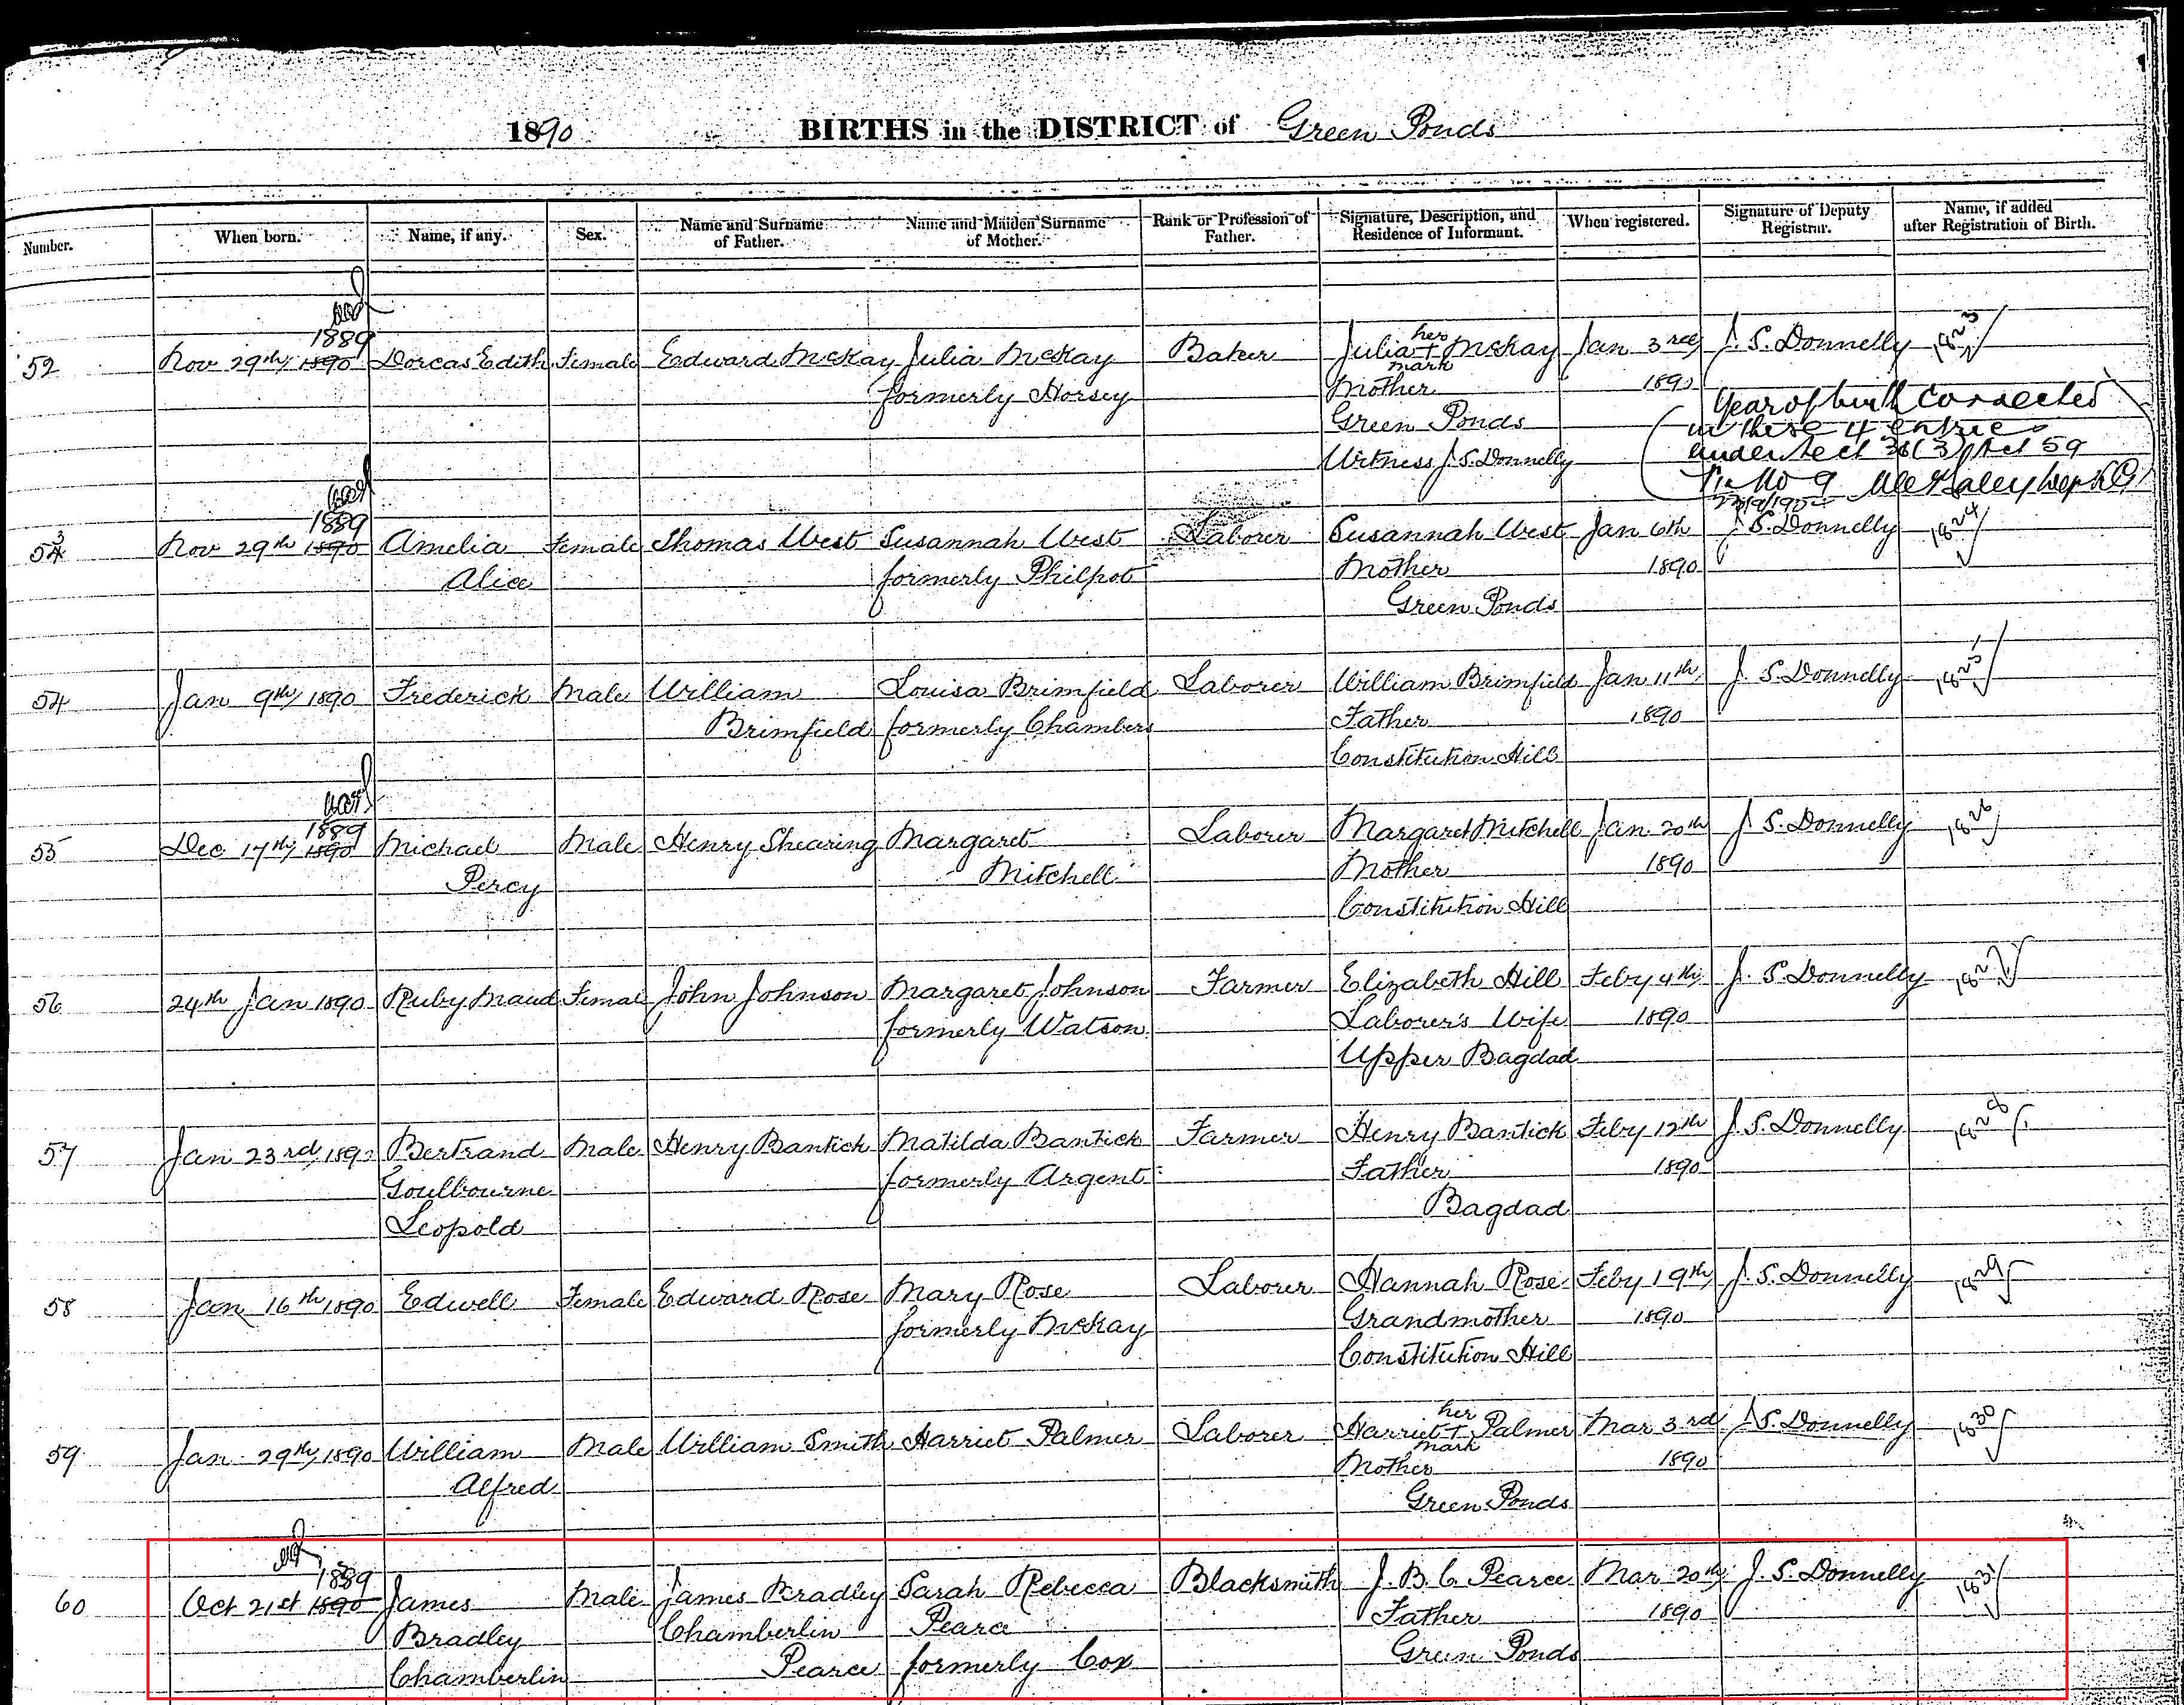 1890 BIRTHS in the DISTRICT of Green Ponds
Number. When born. Name, if any. Sex. Name and Surname of Father. Name and Maiden Surname of Mother. Rank or Profession of Father. Signature, Description, and Residence of Informant. When registered. Signature of Deputy Registrar. Name, if added after Registration of Birth.
1889 her 1823
52 Nov 29th 1890 Dorcas Edith Female Edward McKay Julia McKay Baker Julia + McKay Jan 3rd J. S. Donnelly
mark
formerly Horsey Mother 1890
Green Ponds
Witness J. S. Donnelly
Year of birth corrected
in these 4 entries
under Sect 38(3) Act 59
No 9
1889 1824
53 Nov 29th 1890 Amelia Female Thomas West Susannah West Laborer Susannah West Jan 6th J. S. Donnelly
Alice formerly Philpot Mother 1890
Green Ponds
54 Jan 9th 1890 Frederick Male William Louisa Brimfield Laborer William Brimfield Jan 11th J. S. Donnelly 1825
Brimfield formerly Chambers Father 1890
Constitution Hill
1889
55 Dec 17th 1890 Michael Male Henry Shearing Margaret Laborer Margaret Mitchell Jan 20th J. S. Donnelly 1826
Percy Mitchell Mother 1890
Constitution Hill
56 24th Jan 1890 Ruby Maud Femal John Johnson Margaret Johnson Farmer Elizabeth Hill Feby 4th J. S. Donnelly 1827
formerly Watson Laborer's Wife 1890
Upper Bagdad
57 Jan 23rd 1890 Bertrand Male Henry Bantick Matilda Bantick Farmer Henry Bantick Feby 12th J. S. Donnelly 1828
Goulbourne formerly Argent Father 1890
Leopold Bagdad
58 Jan 16th 1890 Edwell Female Edward Rose Mary Rose Laborer Hannah Rose Feby 19th J. S. Donnelly 1829
formerly McKay Grandmother 1890
Constitution Hill
her
59 Jan 29th 1890 William Male William Smith Harriet Palmer Laborer Harriet + Palmer Mar 3rd J. S. Donnelly 1830
mark
Alfred Mother 1890
Green Ponds
1889
60 Oct 21st 1890 James Male James Bradley Sarah Rebecca Blacksmith J. B. C Pearce Mar 20th J. S. Donnelly 1831
Bradley Chamberlin Pearce Father 1890
Chamberlin Pearce formerly Cox Green Ponds